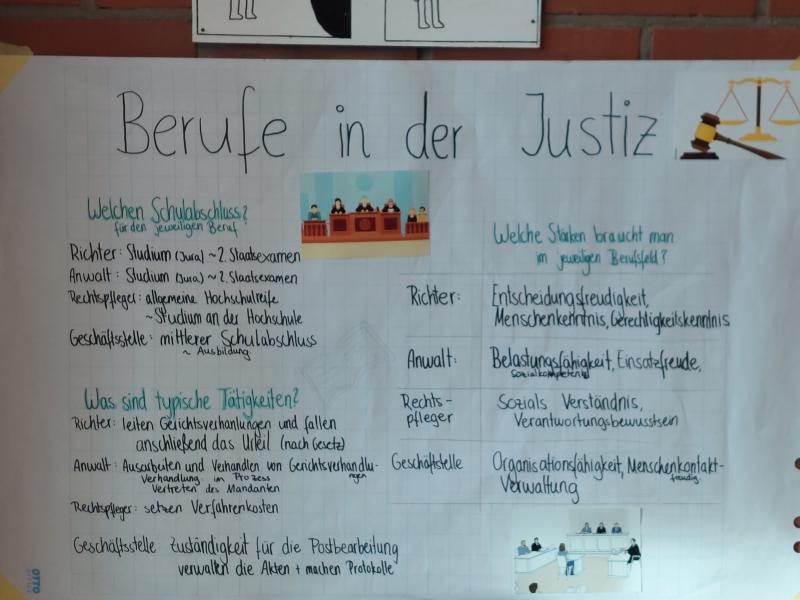 Berufe in der Justiz
Welchen Schulabschluss?
für den jeweiligen Beruf
Richter: Studium (Jura) ~ 2. Staatsexamen
Anwalt: Studium (Jura) ~ 2. Staatsexamen
Rechtspfleger: allgemeine Hochschulreife
~ Studium an der Hochschule
Geschäftsstelle: mittlerer Schulabschluss
~ Ausbildung
Was sind typische Tätigkeiten?
Richter: leiten Gerichtsverhanlungen und fällen
anschließend das Urteil (nach Gesetz)
Anwalt: Ausarbeiten und Verhandlen von Gerichtsverhandlu-
ngen
Verhandlung im Prozess
Vertreten des Mandanten
Rechtspfleger: setzen Verfahrenkosten
Geschäftsstelle zuständigkeit für die Postbearbeitung
verwalten die Akten + machen Protokolle
Welche Stärken braucht man
im jeweiligen Berufsfeld?
Richter: Entscheidungsfreudigkeit,
Menschenkenntnis, Gerechtigkeitskenntnis
Anwalt: Belastungsfähigkeit, Einsatzfreude,
Sozialkompetenz
Rechts- Sozials Verständnis,
pfleger Verantwortungsbewusstsein
Geschäftstelle Organisationsfähigkeit, Menschenkontakt-
freudig
Verwaltung
OTTO